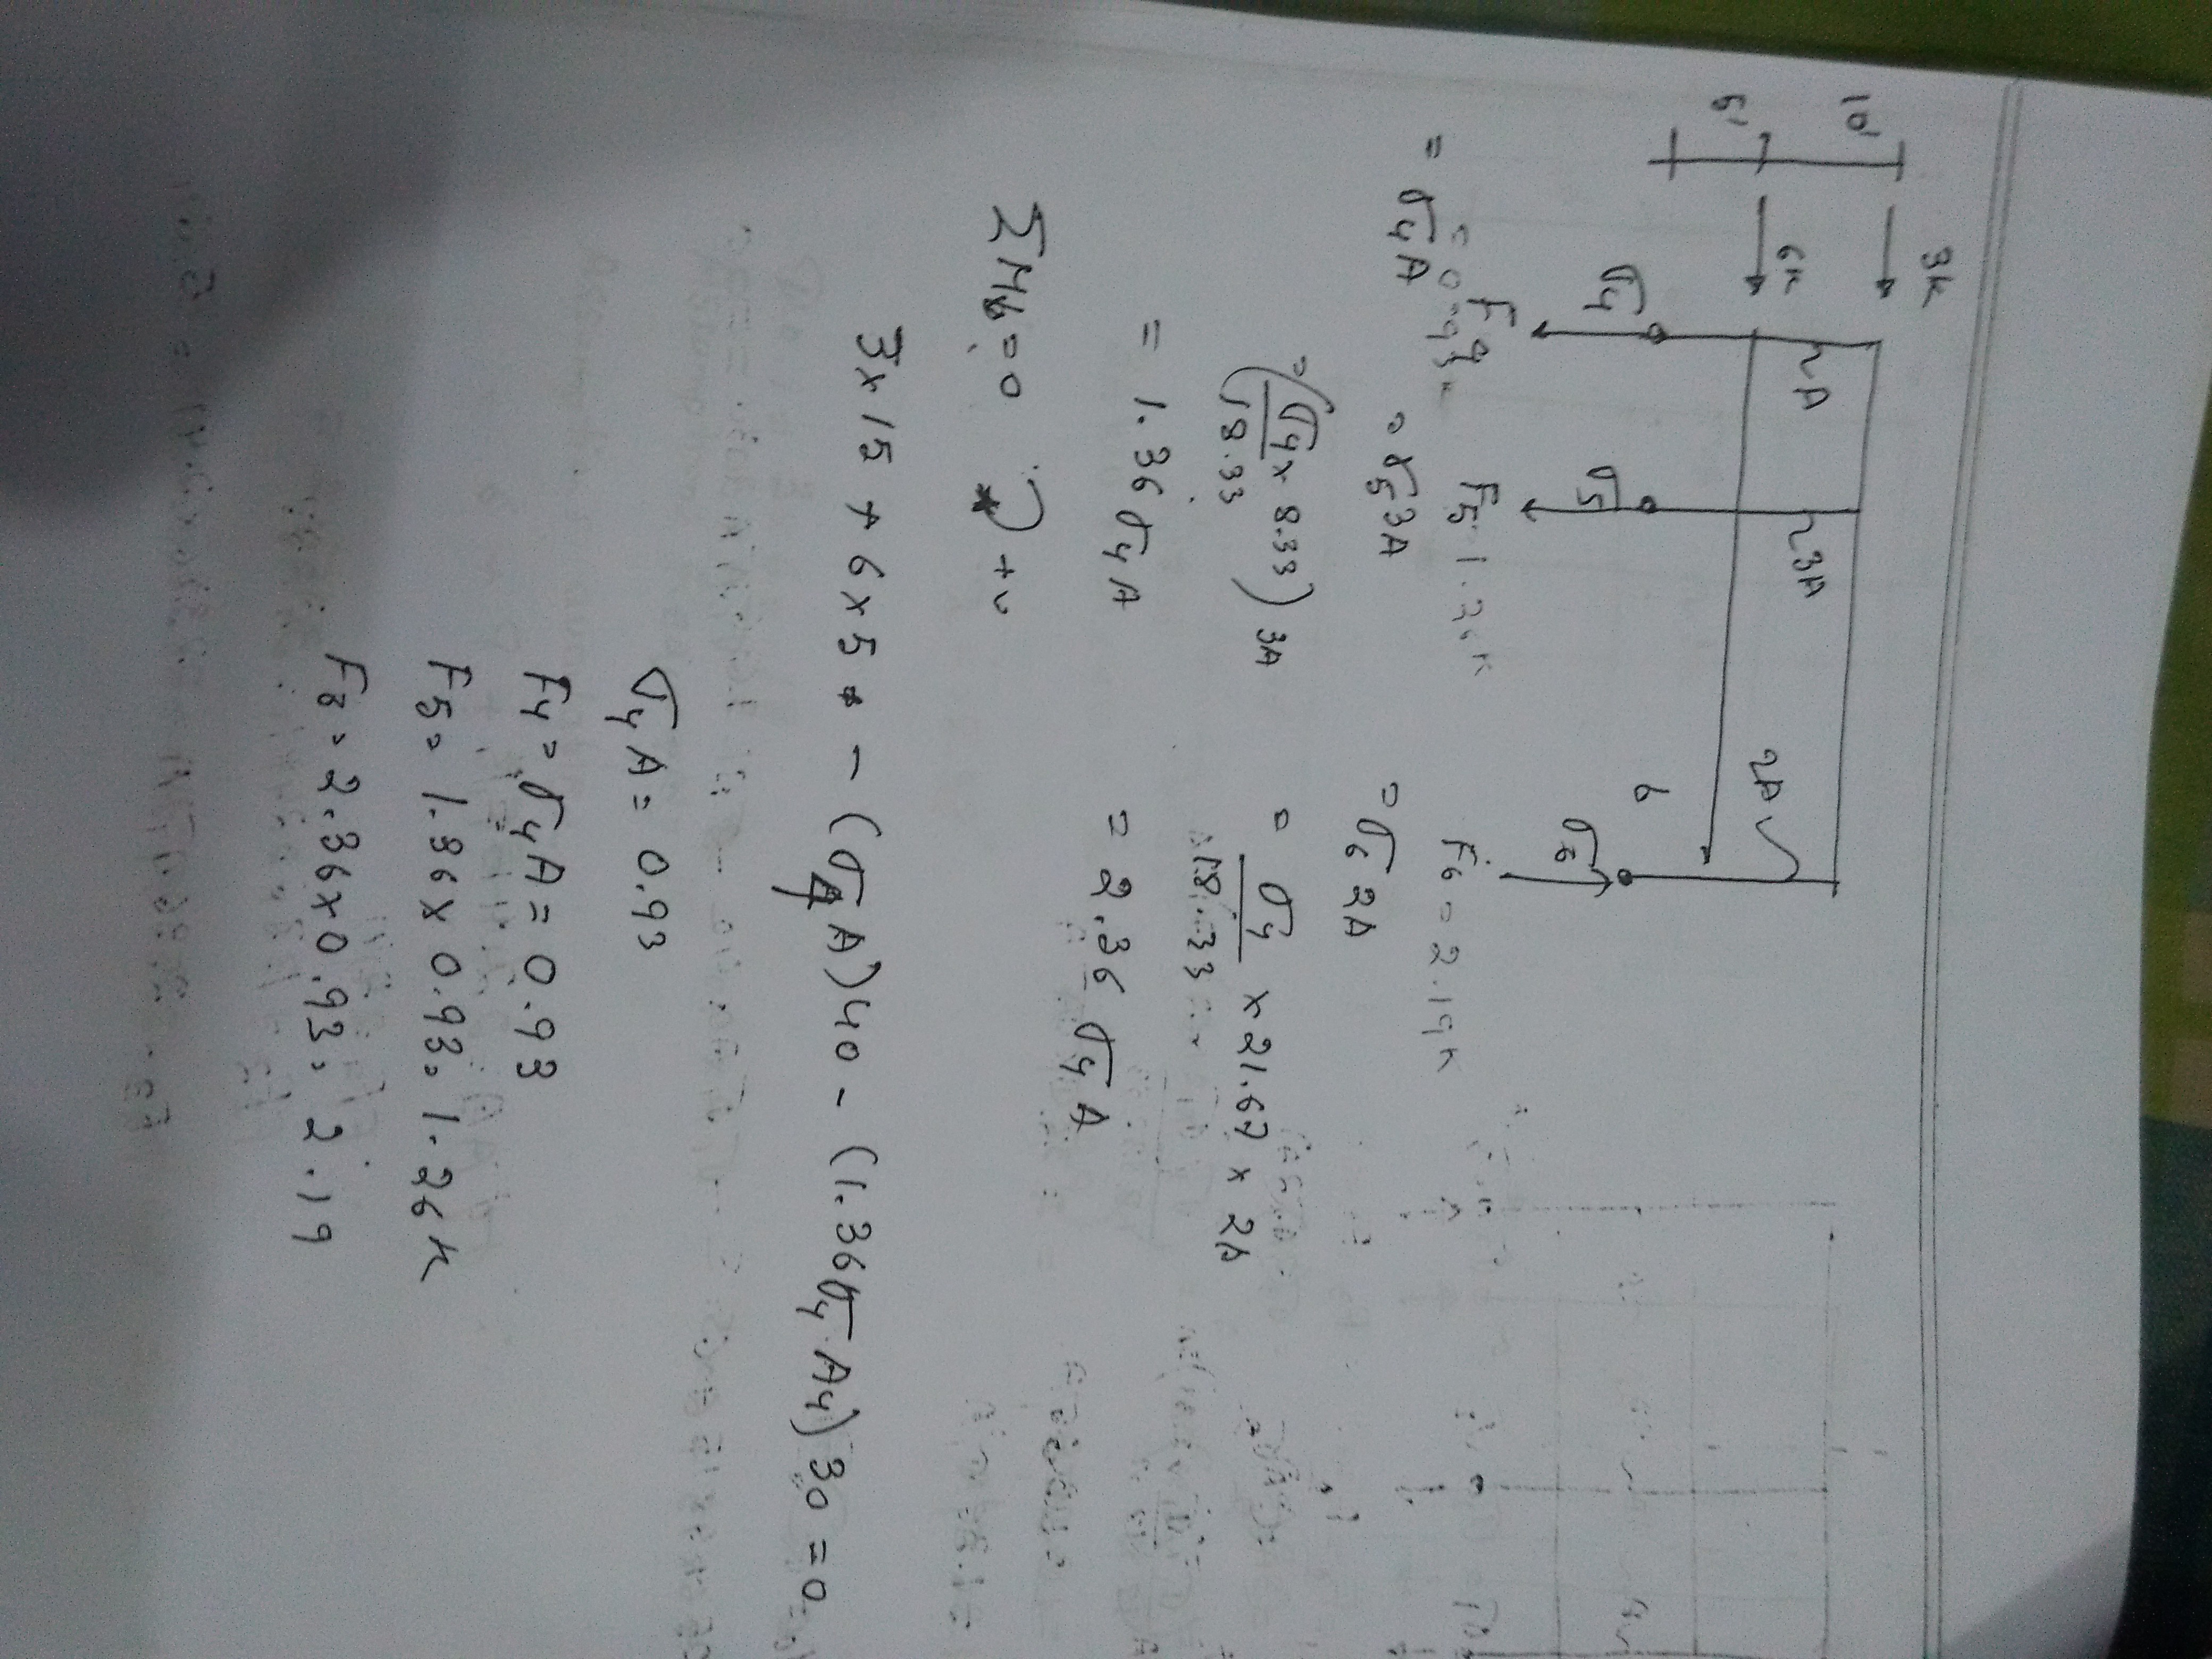 3k
10'
6k
5'
A
3A
2A
σ4
σ5
σ6
6
F4 = 0.93
F5 = 1.26K
F6 = 2.19K
= σ4A
= σ5 3A
= σ6 2A
= (σ4/18.33 x 8.33) 3A
= σ4/18.33 x 21.67 x 2A
= 1.36 σ4 A
= 2.36 σ4 A
ΣM6 = 0 +ve
3x15 + 6x5 - (σ4 A)40 - (1.36σ4 A4)30 = 0
σ4 A = 0.93
F4 = σ4 A = 0.93
F5 = 1.36 x 0.93 = 1.26 K
F6 = 2.36x0.93 = 2.19